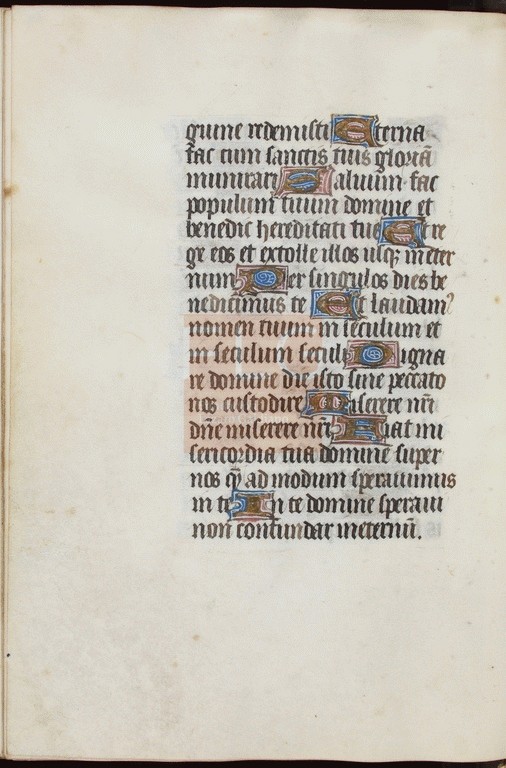 guine redemisti Eterna
fac cum sanctis tuis gloriā
munirari Saluum fac
populum tuum domine et
benedic hereditati tue Et re
ge eos et extolle illos usq; in eter
num Per singulos dies be
nedicimus te Et laudam⁹
nomen tuum in seculum et
in seculum seculi Digna
re domine die isto sine peccato
nos custodire Miserere nr̄i
dn̄e miserere nr̄i Fiat mi
sericordia tua domine super
nos quē ad modum sperauimus
in te In te domine speraui
non confundar in eternū.